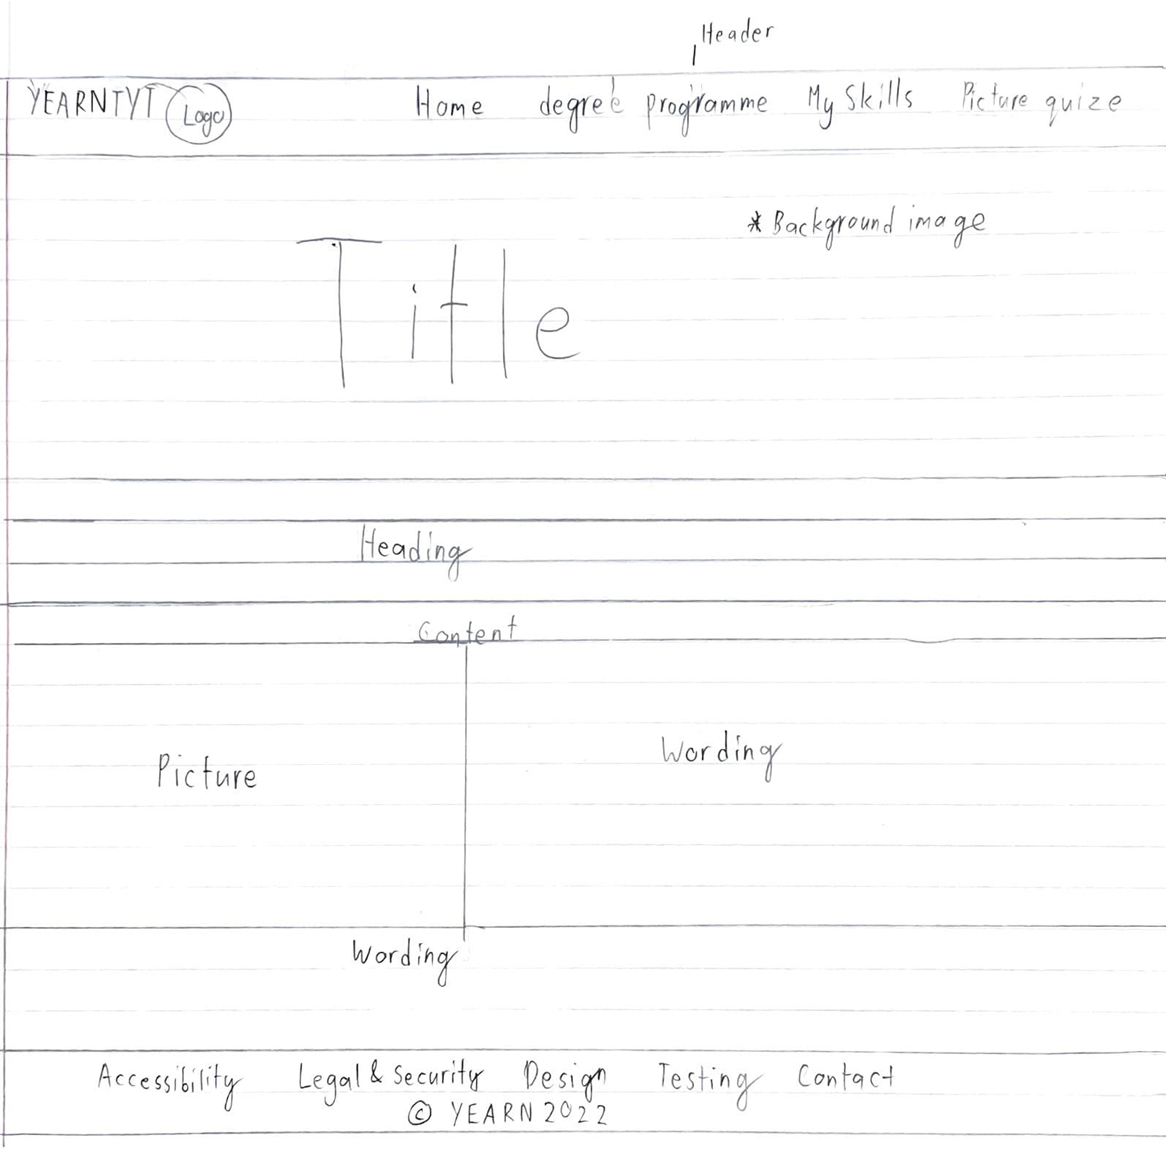 Header
YEARNTYT Logo Home degree programme My Skills Picture quize
* Background image
Title
Heading
Content
Picture Wording
Wording
Accessibility Legal & Security Design Testing Contact
© YEARN 2022